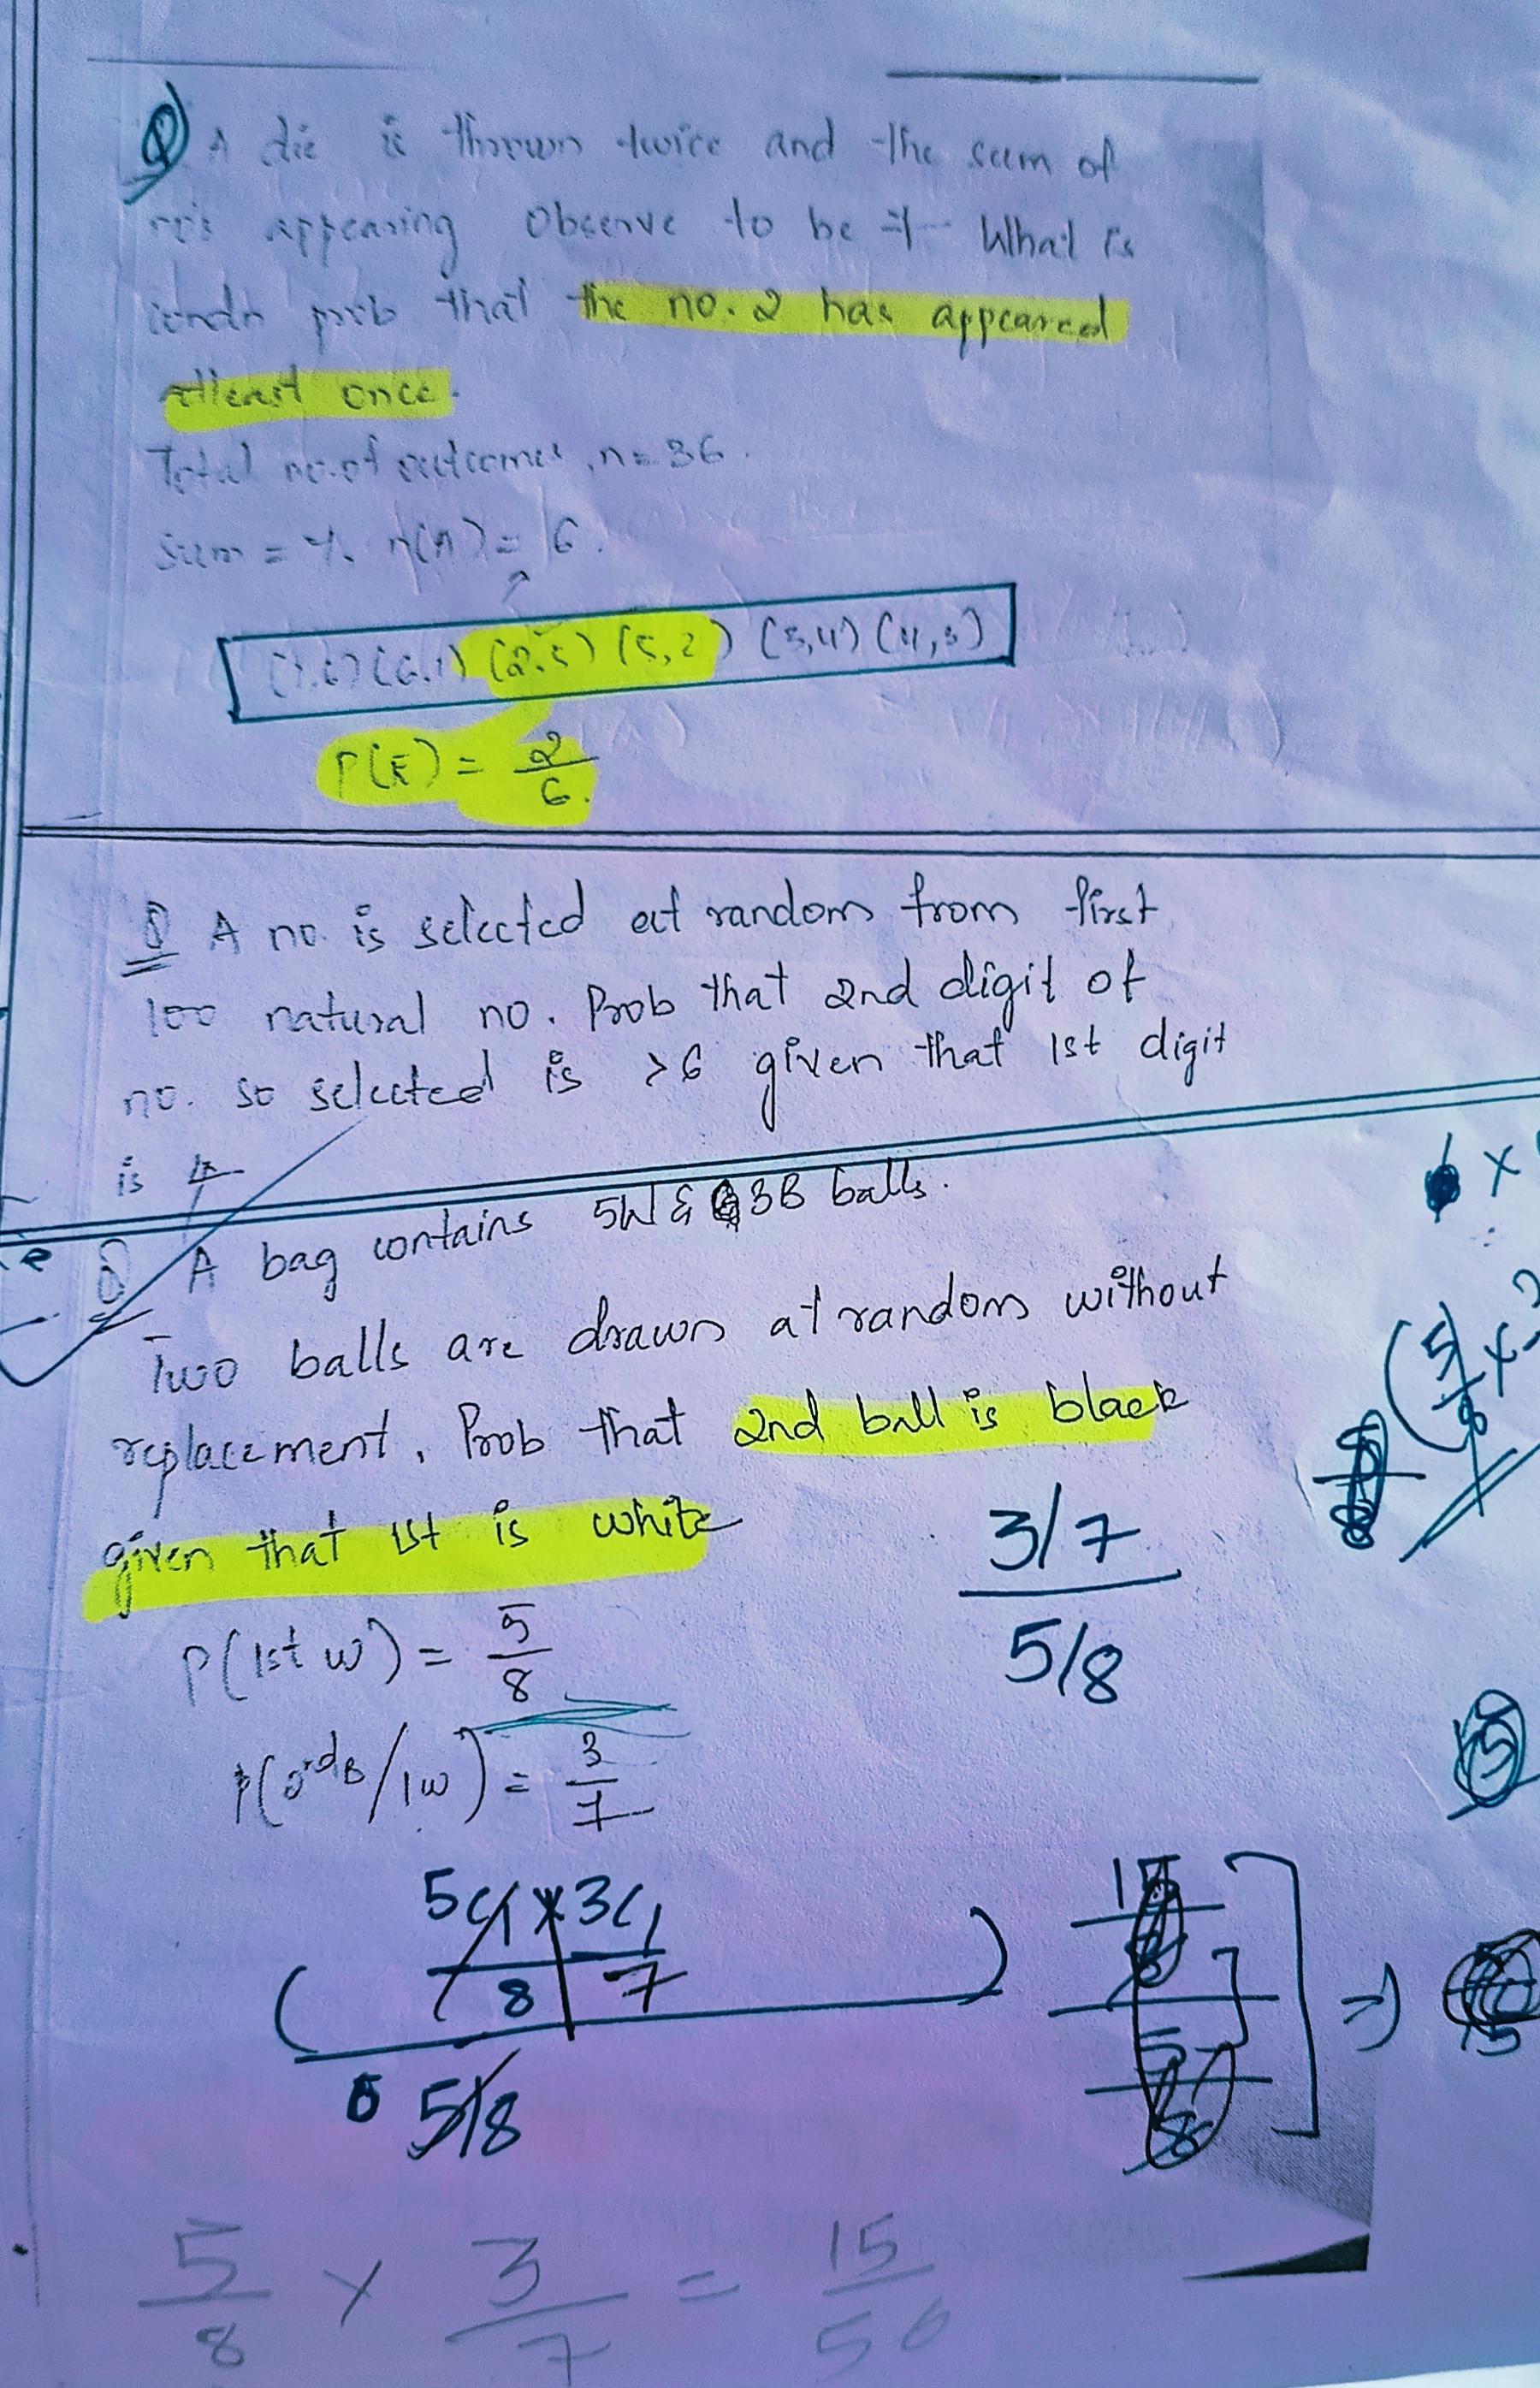 Q A die is thrown twice and the sum of
no's appearing observe to be 7. What is
condn prob that the no. 2 has appeared
atleast once.
Total no. of outcomes, n = 36.
Sum = 7. n(A) = 6.
(1,6) (6,1) (2,5) (5,2) (3,4) (4,3)
P(E) = 2/6.
Q A no. is selected at random from first
100 natural no. Prob that 2nd digit of
no. so selected is >6 given that 1st digit
is 4
Q A bag contains 5W & 3B balls.
Two balls are drawn at random without
replacement. Prob that 2nd ball is black
given that 1st is white
3/7
5/8
P(1st W) = 5/8
P(2nd B/1W) = 3/7
5C1 x 3C1
8 7
5/8
5/8 x 3/7 = 15/56